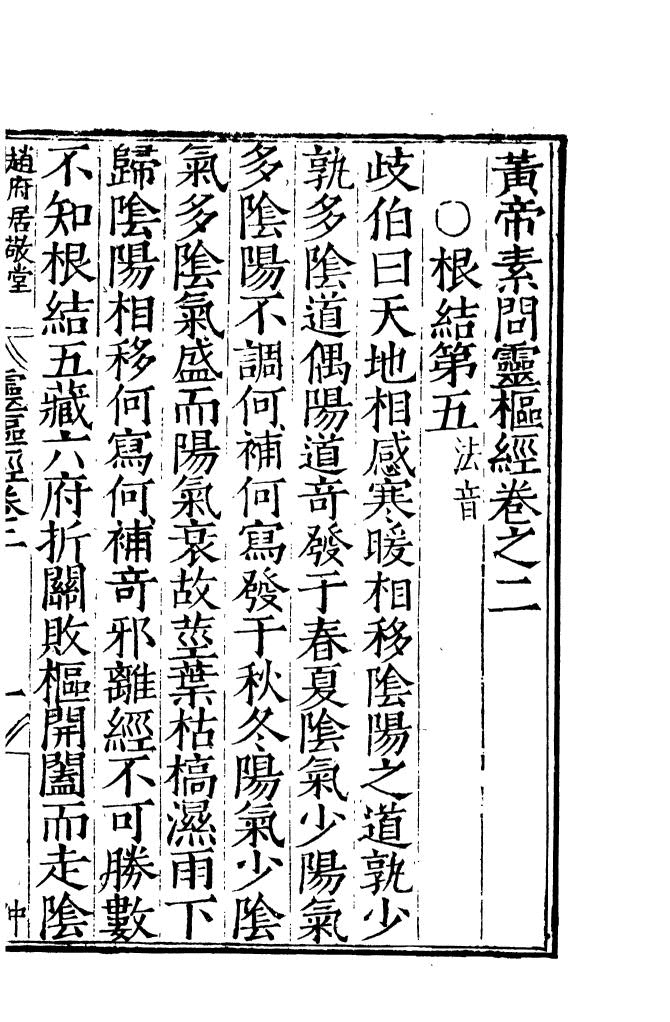 黃帝素問靈樞經卷之二
○根結第五法音
歧伯曰天地相感寒暖相移陰陽之道孰少
孰多陰道偶陽道竒發于春夏陰氣少陽氣
多陰陽不調何補何寫發于秋冬陽氣少陰
氣多陰氣盛而陽氣衰故莖葉枯槁濕雨下
歸陰陽相移何寫何補竒邪離經不可勝數
不知根結五藏六府折關敗樞開闔而走陰
趙府居敬堂 靈樞經卷二 一